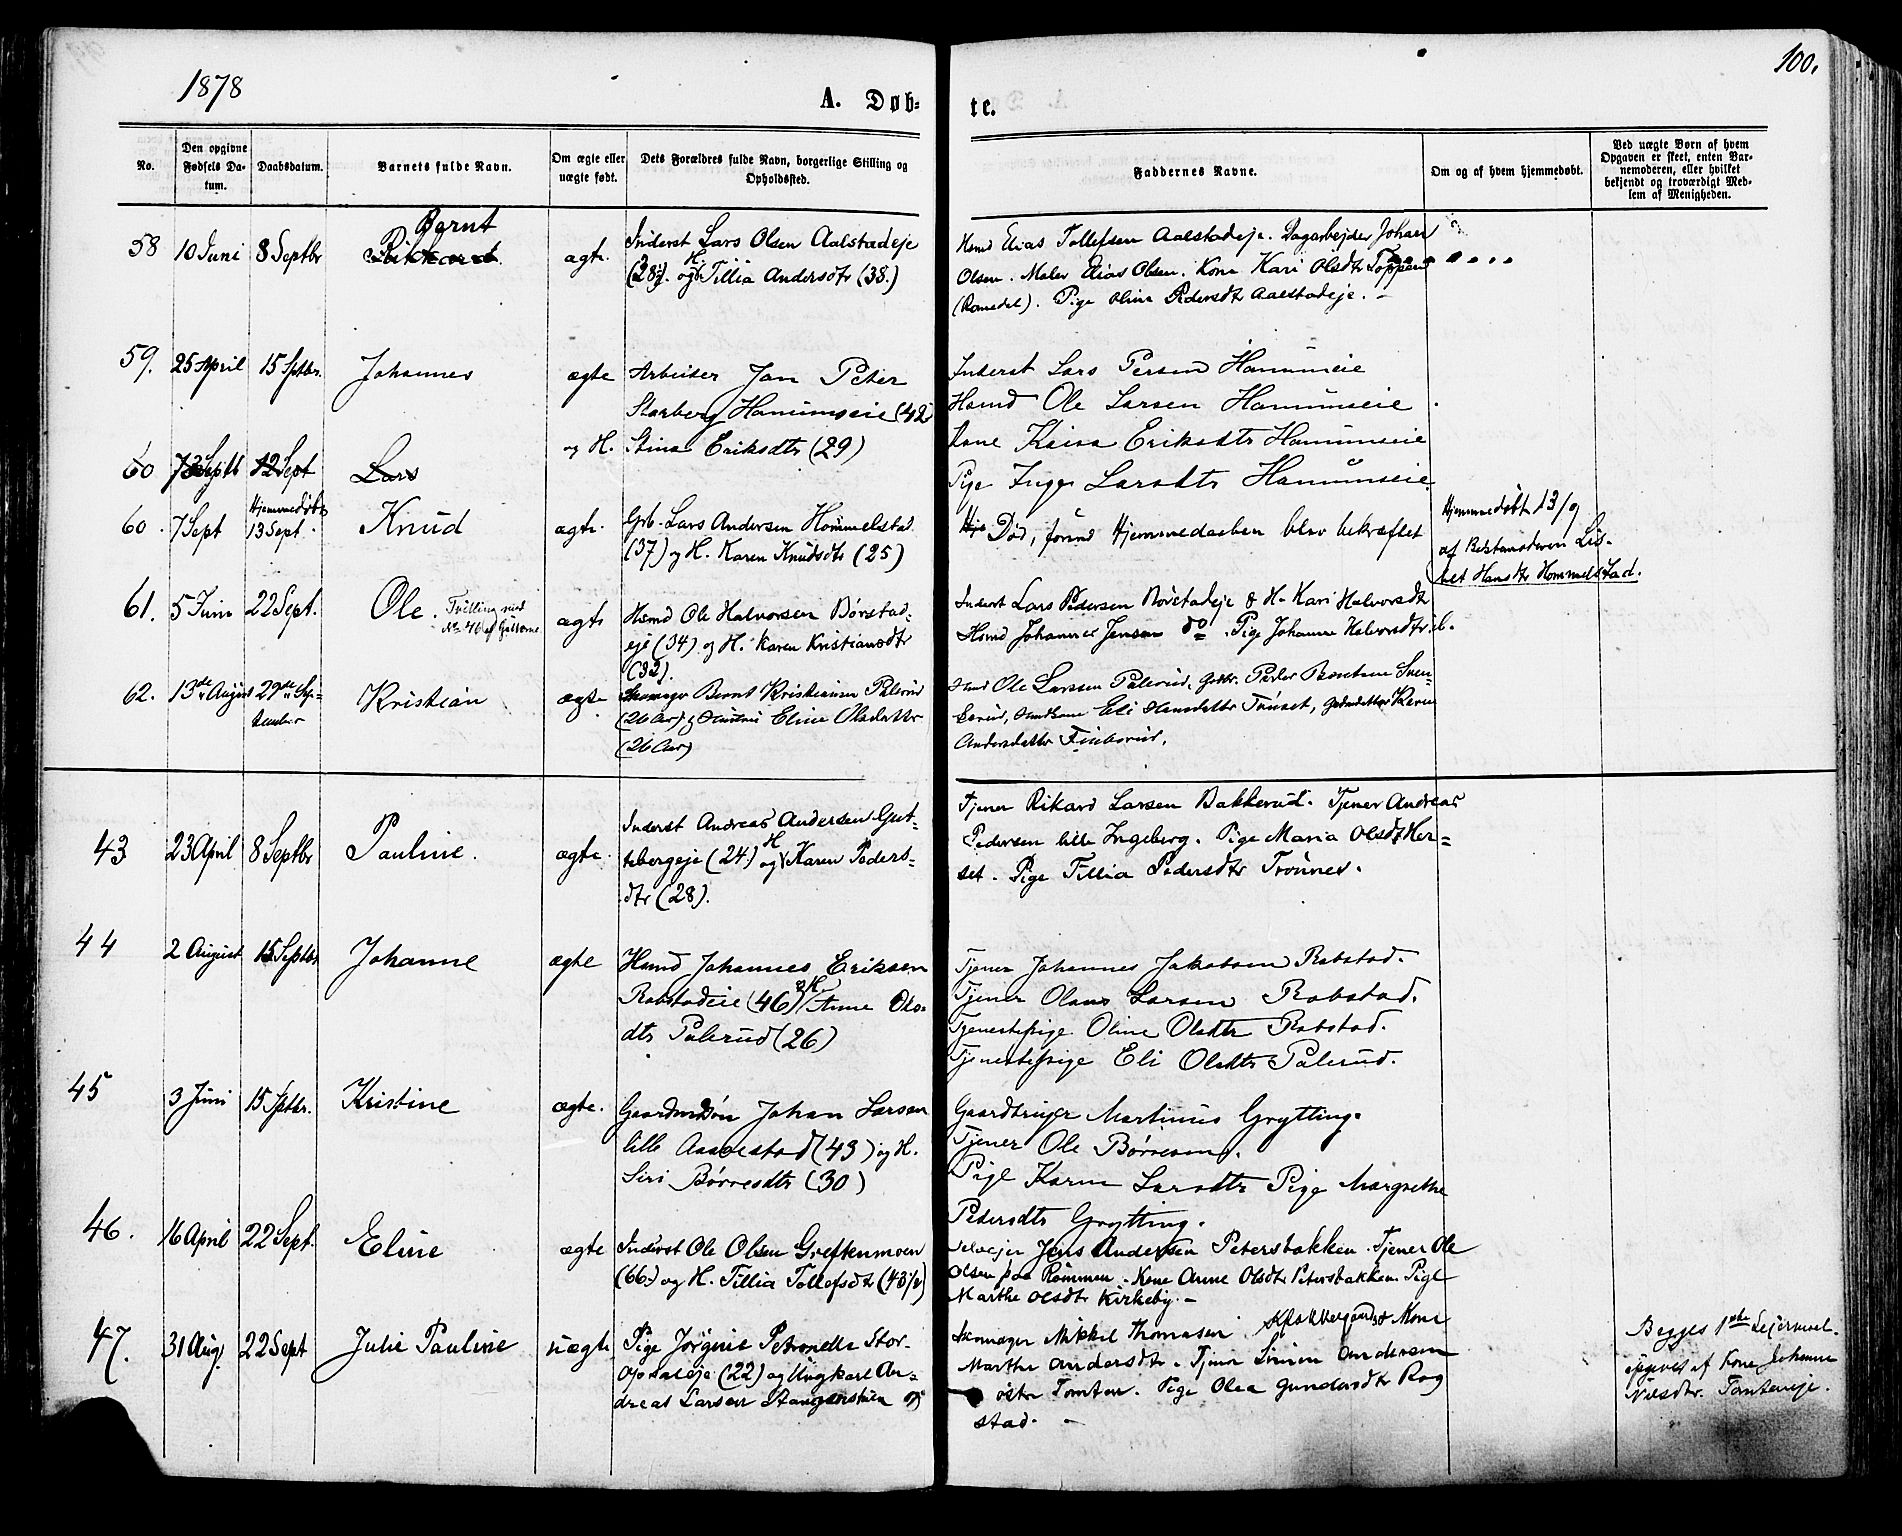 1878
A. Døb-
te.
100.
No.
Den opgivne Fødsels Datum.
Daabsdatum.
Barnets fulde Navn.
Om ægte eller uægte født.
Dets Forældres fulde Navn, borgerlige Stilling og Opholdssted.
Faddernes Navne.
Om og af hvem hjemmedøbt.
Ved uægte Børn af hvem Opgaven er skeet, enten Barnemoderen, eller hvilket bekjendt og troværdigt Medlem af Menigheden.
58 10 Juni 8 Septbr Bernt
Rikkard. ægte.
Inderst Lars Olsen Aalstadeje
(28½). og H. Tillia Andersdtr (38.)
Hsmd Elias Tollefsen Aalstadeje. Dagarbejder Johan
Olsen. Maler Elias Olsen. Kone Kari Olsdtr Toppen
(Romedal). Pige Oline Pedersdtr Aalstadeje. –
59. 25 April 15 Septbr. Johannes ægte
Arbeider Jan Peter
Starberg Hommseie (42
og H. Stina Eriksdtr (29)
Inderst Lars Persen Hommseie
Hsmd Ole Larsen Hommseie
Kone Kaisa Eriksdtr Hommseie
Pige Inger Larsdtr Hommseie
60 7 Septb 12 Sept Lars
60. 7 Sept Hjemmedøbt
13 Sept. Knud ægte.
Grb. Lars Andersen Hommelstad
(37) og H. Karen Knudsdtr (25)
Død, førend Hjemmedaaben blev bekræftet
Hjemmedøbt 13/9
af Bedstemoderen Lis-
bet Hansdtr Hommelstad.
61. 5 Juni 22 Sept. Ole. Tvilling med
No 46 af Pigerne ægte
Hsmd Ole Halvorsen Børstad-
eje (34) og H. Karen Kristiansdtr
(32).
Inderst Lars Pedersen Børstadeje & H. Kari Halvorsdtr
Hsmd Johannes Jensen do. Pige Johanne Halvorsdtr ib.
62. 13de August 29de Sep-
tember Kristian ægte.
Skomager Bernt Kristiansen Palerud
(26 Aar) og Hustru Eline Olsdatter
(26 Aar)
Hsmd Ole Larssen Palerud, Gbr. Peder Bentsen Sven-
serud, Husm.kone Eli Hansdatter Truset, Gaardm.datter Karen
Andersdatter Finborud.
43 23 April 8 Septbr Pauline. ægte.
Inderst Andreas Andersen Gut-
tebergeje (24) og H. Karen Peders-
dtr (28).
Tjener Rikard Larsen Bakkerud. Tjener Andreas
Pedersen lille Ingeberg. Pige Maria Olsdtr Her-
set. Pige Tillia Pedersdtr Trønnes.
44 2 August 15 Septbr Johanne ægte
Hsmd Johannes Eriksen
Robstadeie (46) og H. Anne Ols-
dtr Palerud (26)
Tjener Johannes Jakobsen Robstad.
Tjener Olaus Larsen Robstad.
Tjenestepige Oline Olsdtr Robstad.
Tjenestepige Eli Olsdtr Palerud.
45 3 Juni 15 Septbr. Kristine ægte.
Gaardmdsøn Johan Larsen
lille Aasbestad (43) og H.
Siri Børresdtr (30)
Gaardbruger Martinus Grytting.
Tjener Ole Børresen.
Pige Karen Larsdtr Pige Margrethe
Pedersdtr Grytting.
46. 16 April 22 Sept. Eline ægte
Inderst Ole Olsen Greftenmoen
(66.) og H. Tillia Tollefsdtr (43½)
Selvejer Jens Andersen Petersbakken. Tjener Ole
Olsen paa Rommen. Kone Anne Olsdtr Petersbakken. Pige
Marthe Olsdtr Kirkeby. –
47. 31 Aug. 22 Sept Julie Pauline uægte
Pige Jørgine Petronelle Stor-
opsaleje (22) og Ungkarl An-
dreas Larsen Stangenstuen
Skomager Mikkel Thomasen Klokkergaard Kone
Marthe Andersdtr. Tjener Simen Andersen
østre Tomten. Pige Olea Gundersdtr Rog
stad. –
Begges 1ste Lejermaal.
opgives af Kone Johanne
Nilsdtr. Tomteneje.